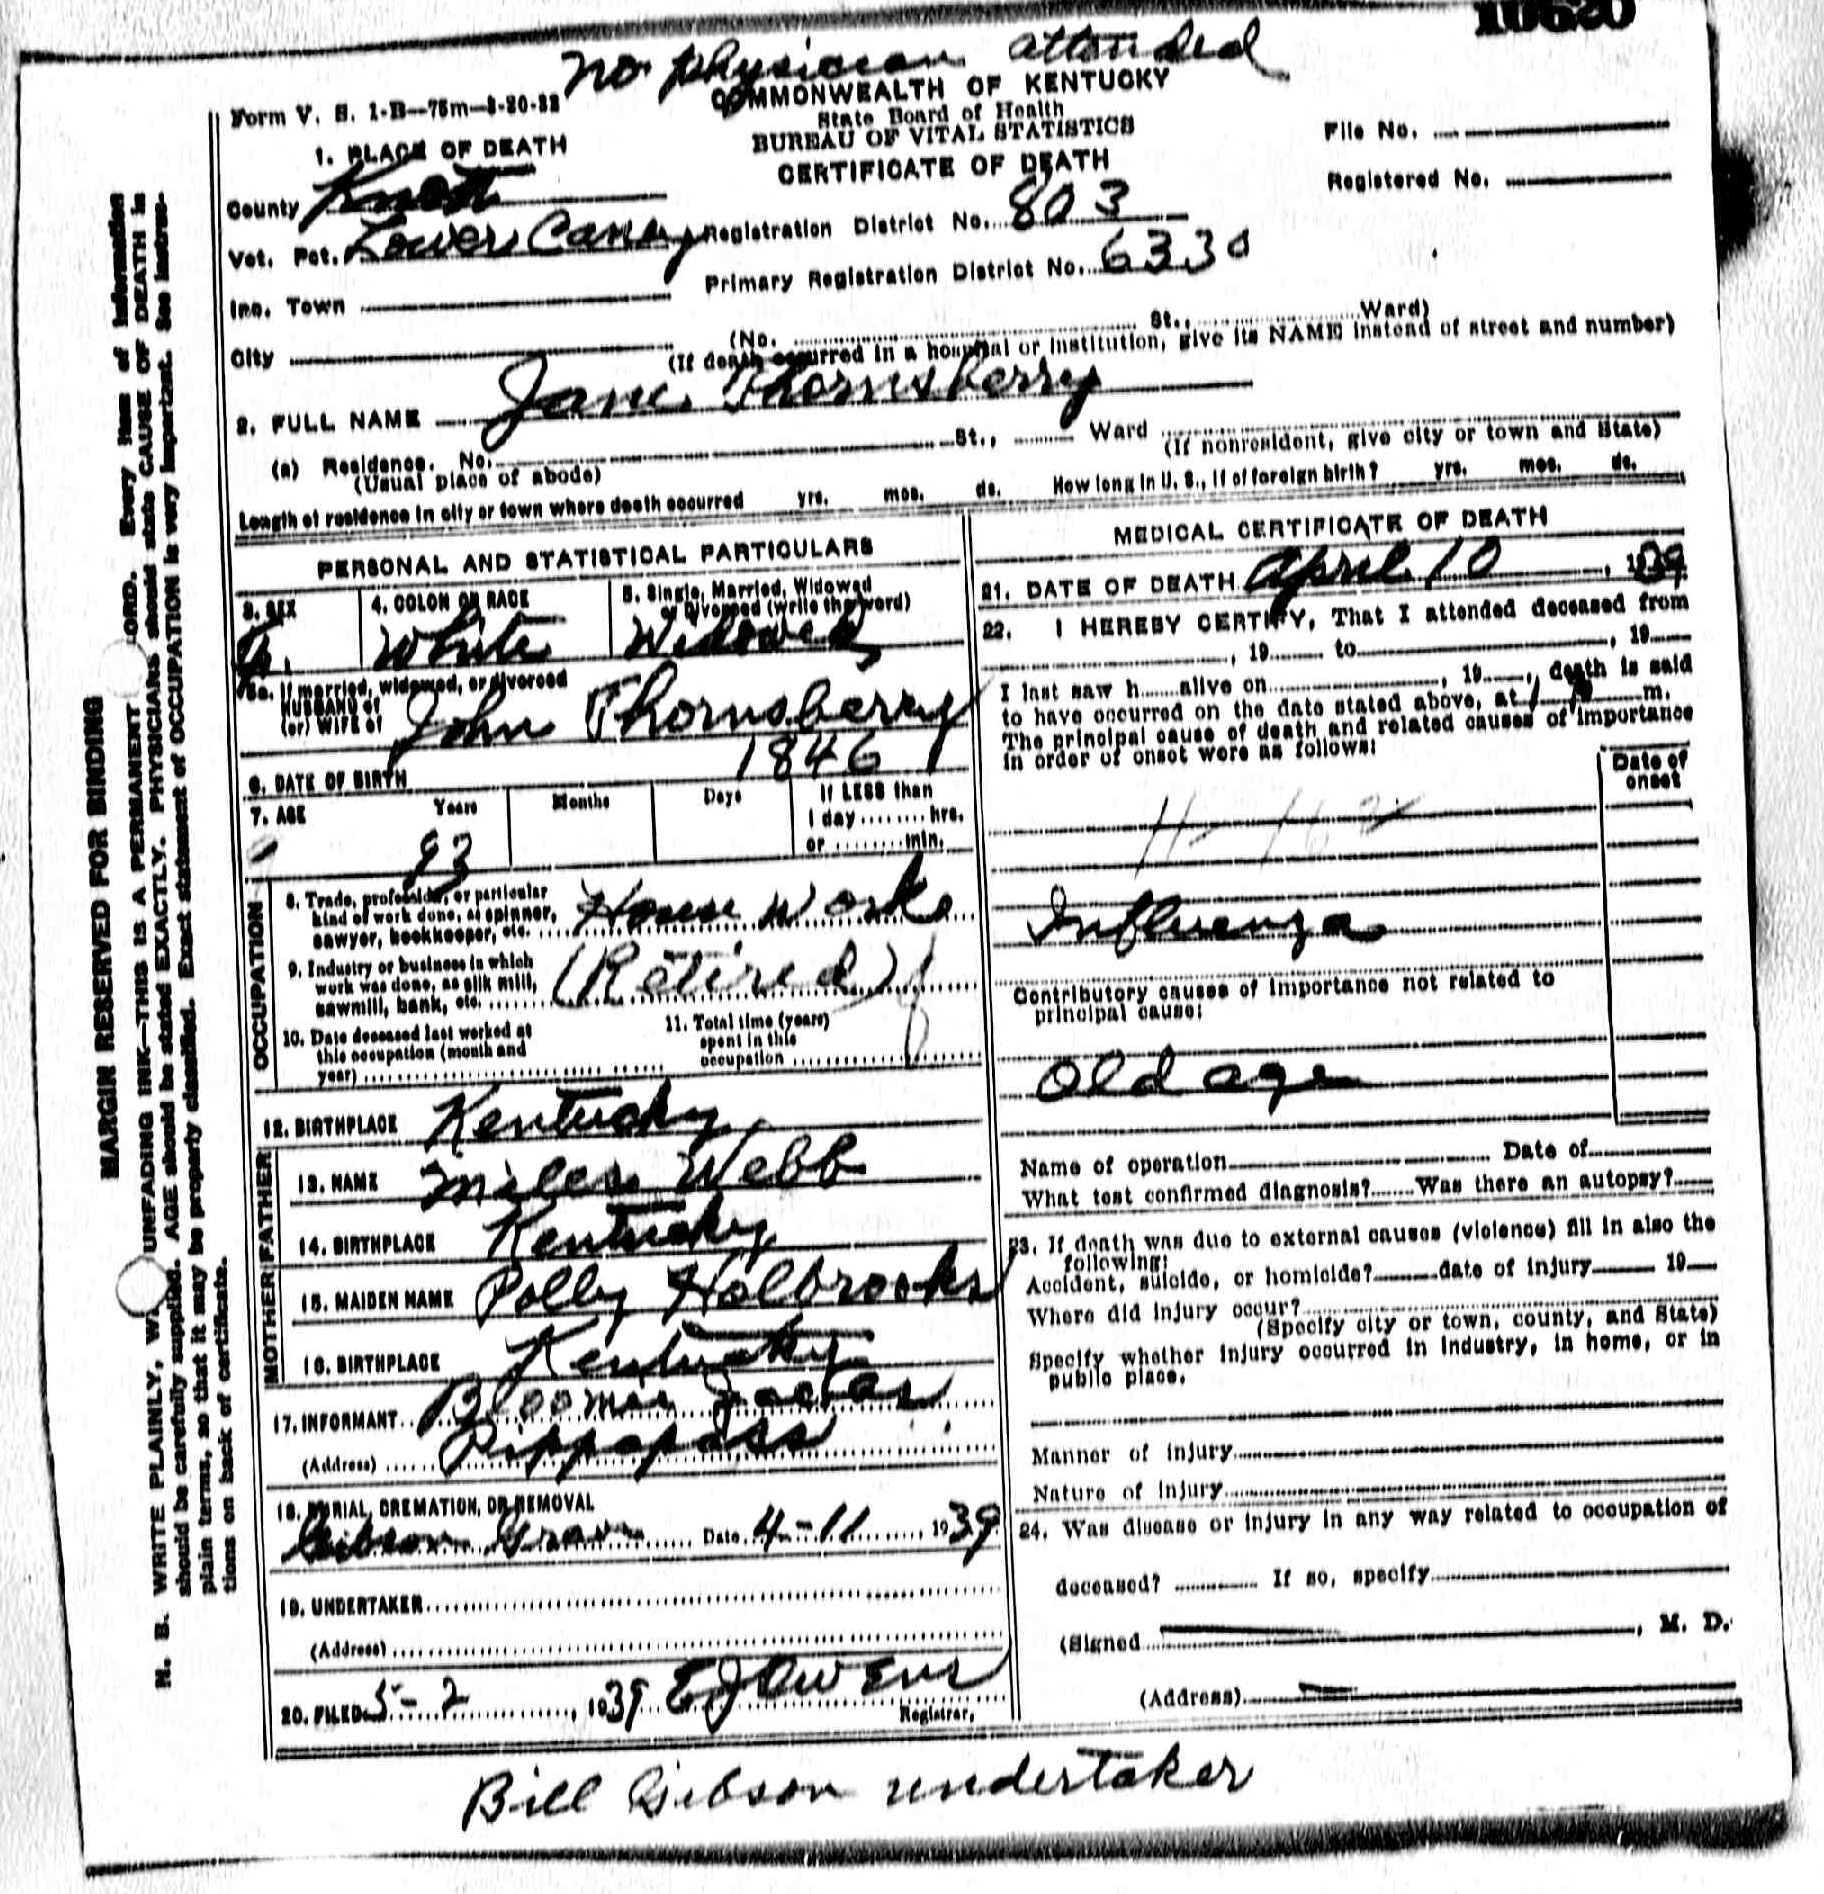 10620
No physician attended
Form V. S. 1-B—75m—3-30-32
COMMONWEALTH OF KENTUCKY
State Board of Health
BUREAU OF VITAL STATISTICS
CERTIFICATE OF DEATH
File No.
Registered No.
1. PLACE OF DEATH
County Knott
Vot. Pct. Lower Caney Registration District No. 803
Inc. Town Primary Registration District No. 6330
City (No. St., Ward)
(If death occurred in a hospital or institution, give its NAME instead of street and number)
2. FULL NAME Jane Thornsberry
(a) Residence. No. St., Ward
(Usual place of abode) (If nonresident, give city or town and State)
Length of residence in city or town where death occurred yrs. mos. ds. How long in U. S., if of foreign birth? yrs. mos. ds.
PERSONAL AND STATISTICAL PARTICULARS
3. SEX 4. COLOR OR RACE 5. Single, Married, Widowed or Divorced (write the word)
F. White Widowed
5a. If married, widowed, or divorced
HUSBAND of
(or) WIFE of John Thornsberry
6. DATE OF BIRTH 1846
7. AGE Years Months Days If LESS than
1 day........hrs.
or ........min.
93
8. Trade, profession, or particular
kind of work done, as spinner,
sawyer, bookkeeper, etc. House work
9. Industry or business in which
work was done, as silk mill,
sawmill, bank, etc. (Retired)
10. Date deceased last worked at
this occupation (month and
year)
11. Total time (years)
spent in this
occupation
OCCUPATION
12. BIRTHPLACE Kentucky
FATHER
13. NAME Miles Webb
14. BIRTHPLACE Kentucky
MOTHER
15. MAIDEN NAME Polly Holbrooks
16. BIRTHPLACE Kentucky
17. INFORMANT Bloomie
(Address) Pippapass
18. BURIAL, CREMATION, OR REMOVAL
Gibson Grave Date 4-11, 1939
19. UNDERTAKER
(Address)
20. FILED 5-2, 1939 E J Owens
Registrar.
MEDICAL CERTIFICATE OF DEATH
21. DATE OF DEATH April 10, 1939
22. I HEREBY CERTIFY, That I attended deceased from
, 19 to , 19
I last saw h alive on , 19 , death is said
to have occurred on the date stated above, at m.
The principal cause of death and related causes of importance
in order of onset were as follows:
Date of
onset
Influenza
Contributory causes of importance not related to
principal cause:
Old age
Name of operation Date of
What test confirmed diagnosis? Was there an autopsy?
23. If death was due to external causes (violence) fill in also the
following:
Accident, suicide, or homicide? date of injury 19
Where did injury occur?
(Specify city or town, county, and State)
Specify whether injury occurred in industry, in home, or in
public place.
Manner of injury
Nature of injury
24. Was disease or injury in any way related to occupation of
deceased? If so, specify
(Signed , M. D.
(Address)
Bill Gibson undertaker
MARGIN RESERVED FOR BINDING
N. B. WRITE PLAINLY, W UNFADING INK—THIS IS A PERMANENT ORD. Every item of information
should be carefully supplied. AGE should be stated EXACTLY. PHYSICIANS should state CAUSE OF DEATH in
plain terms, so that it may be properly classified. Exact statement of OCCUPATION is very important. See instruc-
tions on back of certificate.